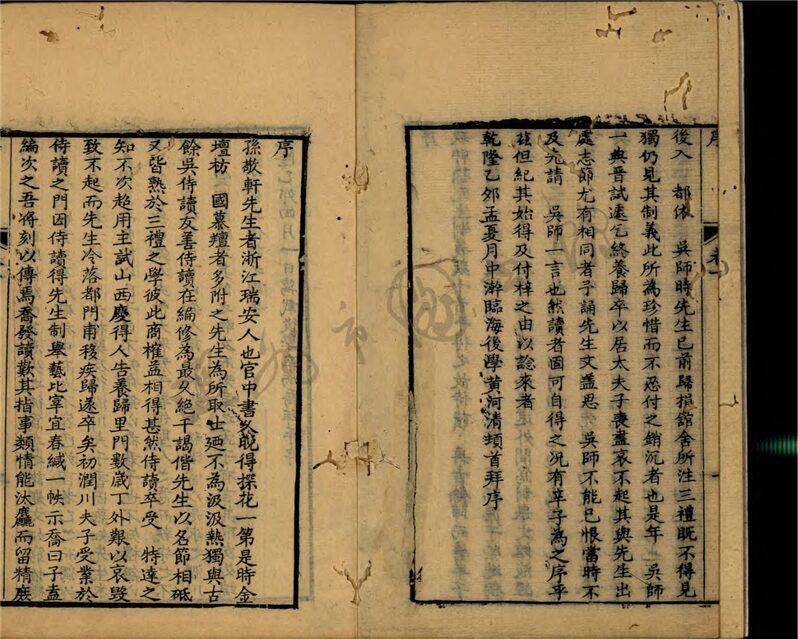 序
後入 都依 吳師時先生已前歸捐館舍所注三禮既不得見
獨仍見其制義此所為珍惜而不忍付之銷沉者也是年 吳師
一典晉試遽乞終養歸卒以居太夫子喪盡哀不起其與先生出
處志節尤有相同者予誦先生文益思 吳師不能已恨當時不
及亢請 吳師一言也然讀者固可自得之況有卒子為之序乎
茲但紀其始得及付梓之由以諗來者
乾隆乙卯孟夏月中澣臨海後學黃河清頓首拜序
序
孫敬軒先生者浙江瑞安人也官中書久晚得探花一第是時金
壇枋 國慕羶者多附之先生為所取士廼不為汲汲熱獨與古
餘吳侍讀友善侍讀在編修為最久絕干謁偕先生以名節相砥
又皆熟於三禮之學彼此商榷益相得甚然侍讀卒受 特達之
知不次超用主試山西慶得人告養歸里門數歲丁外艱以哀毀
致不起而先生冷落都門甫移疾歸遂卒矣初潤川夫子受業於
侍讀之門因侍讀得先生制舉藝比宰宜春緘一帙示喬曰子盍
編次之吾將刻以傳焉喬發讀歎其指事類情能汰麤而留精廢